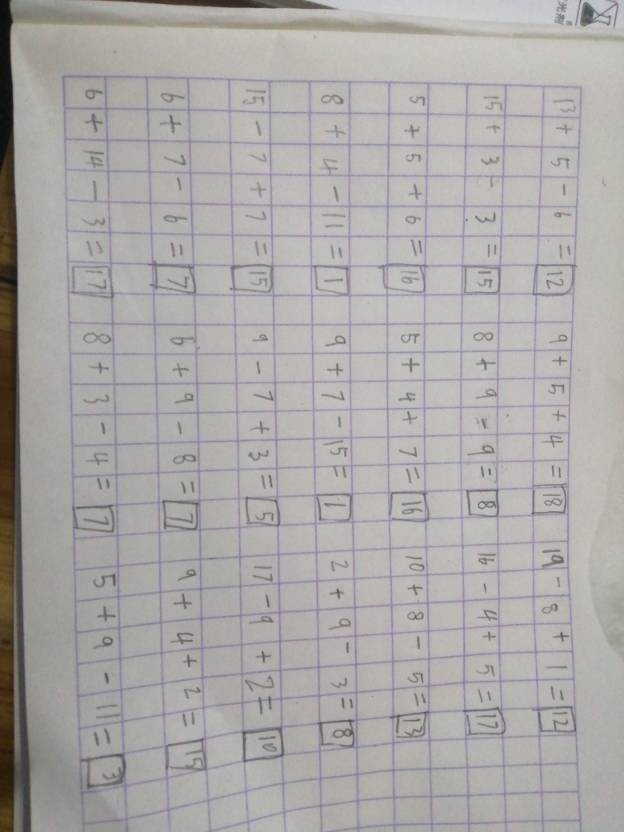 13 + 5 - 6 = 12 9 + 5 + 4 = 18 19 - 8 + 1 = 12
15 + 3 - 3 = 15 8 + 9 - 9 = 8 16 - 4 + 5 = 17
5 + 5 + 6 = 16 5 + 4 + 7 = 16 10 + 8 - 5 = 13
8 + 4 - 11 = 1 9 + 7 - 15 = 1 2 + 9 - 3 = 8
15 - 7 + 7 = 15 9 - 7 + 3 = 5 17 - 9 + 2 = 10
6 + 7 - 6 = 7 6 + 9 - 8 = 7 9 + 4 + 2 = 15
6 + 14 - 3 = 17 8 + 3 - 4 = 7 5 + 9 - 11 = 3